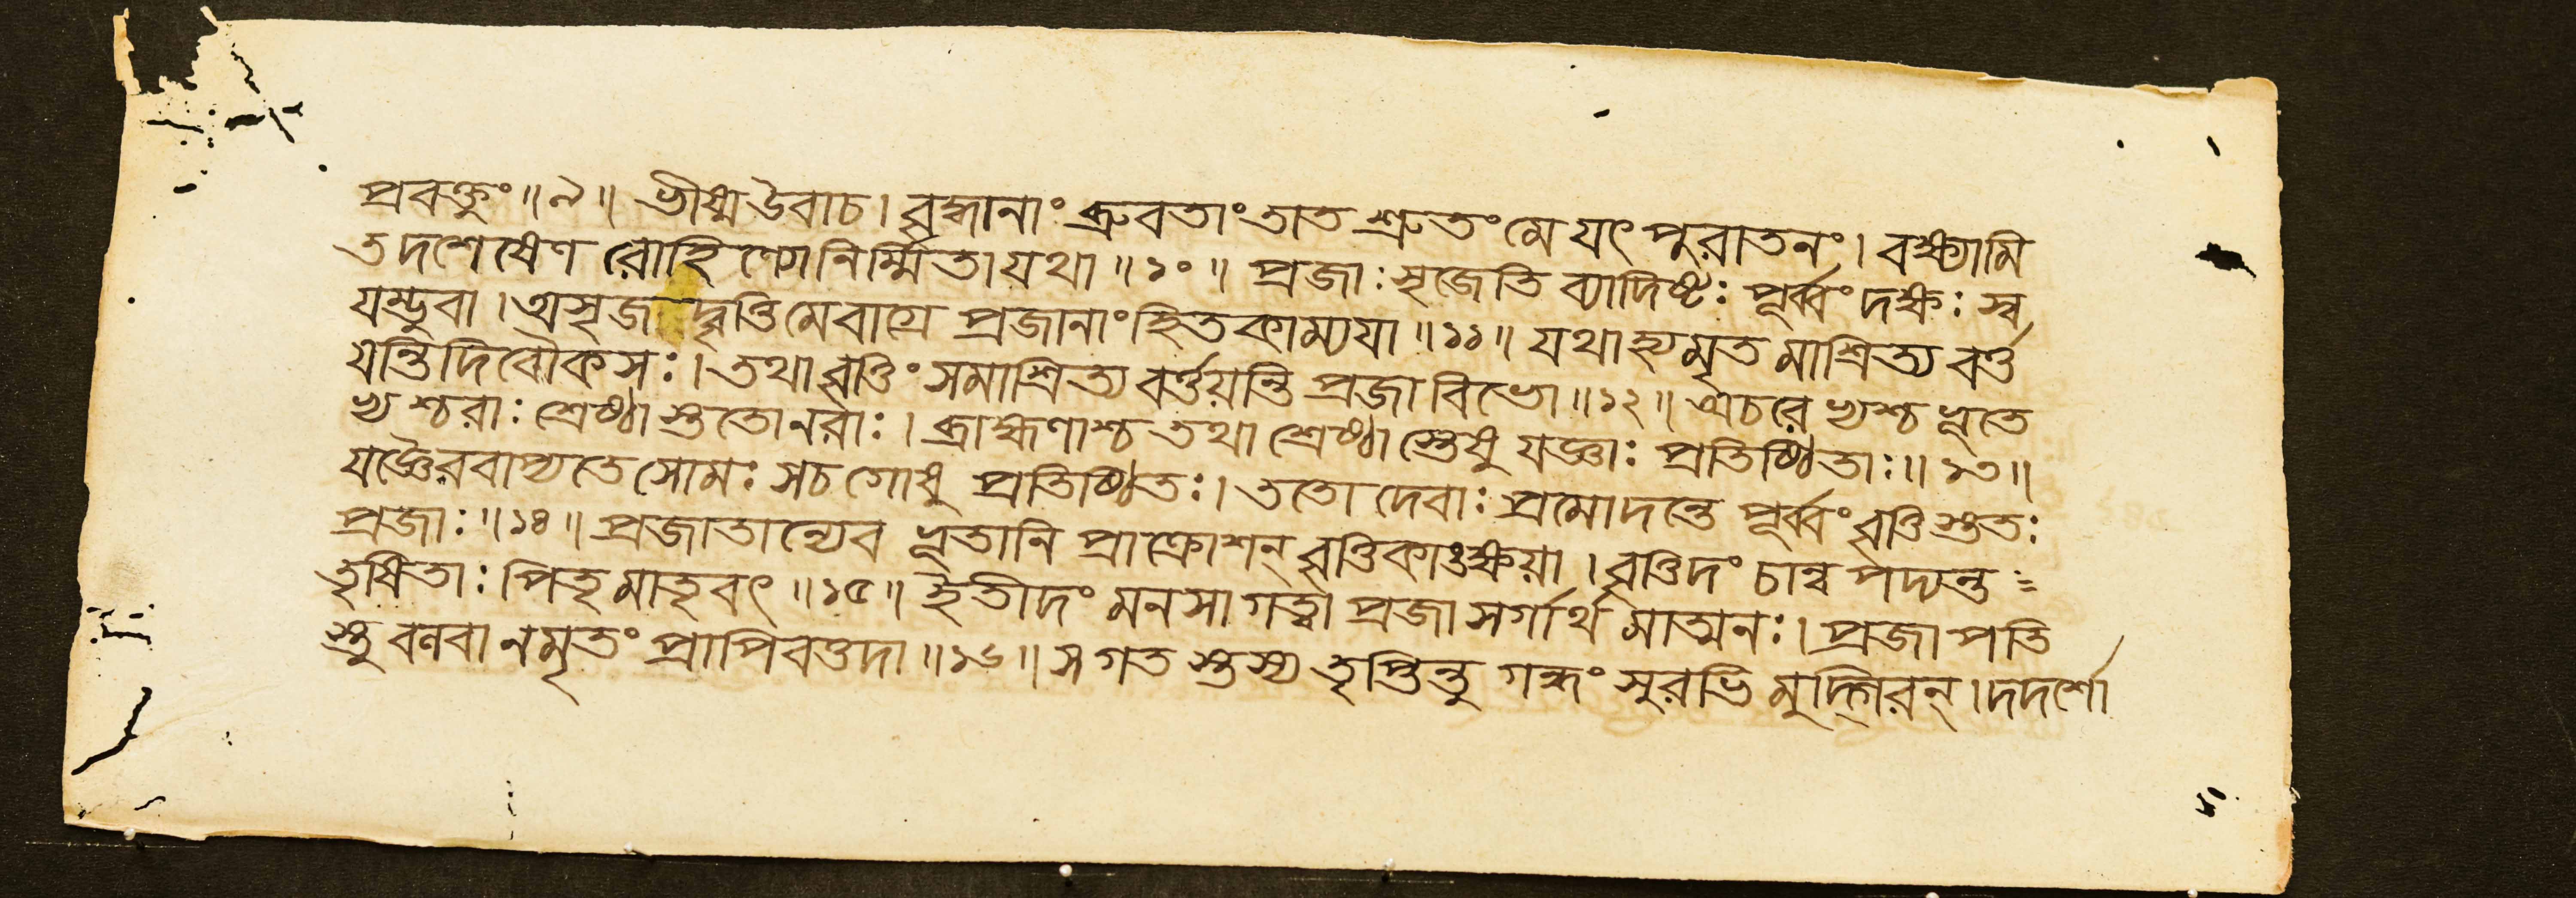 প্রবক্তুং॥৯॥ ভীষ্মউবাচ। বৃদ্ধানাং ব্রুবতাং তাত শ্রুতং মে যৎ পুরাতনং। বক্ষ্যামি
তদশেষেণ রোহিণ্যোনির্ম্মিতা যথা॥১০॥ প্রজাঃ সৃজেতি ব্যাদিষ্টঃ পূর্ব্বং দক্ষঃ স্ব
য়ম্ভুবা। অসৃজদ্বৃত্তিমেবাগ্রে প্রজানাং হিতকাম্যযা॥১১॥ যথাহ্যমৃতমাশ্রিত্য বর্ত্ত
য়ন্তি দিবৌকসঃ। তথা বৃত্তিং সমাশ্রিত্য বর্ত্তয়ন্তি প্রজা বিভো॥১২॥ অচরেভ্যশ্চ ভূতে
ভ্যশ্চরাঃ শ্রেষ্ঠাস্তুতোনরাঃ। ব্রাহ্মণাশ্চ তথা শ্রেষ্ঠাস্তেষু যজ্ঞাঃ প্রতিষ্ঠিতাঃ॥১৩॥
যজ্ঞৈরবাপ্যতে সোমঃ সচ গোষু প্রতিষ্ঠিতঃ। ততো দেবাঃ প্রমোদন্তে পূর্ব্বং বৃত্তিস্তুতঃ
প্রজাঃ॥১৪॥ প্রজাতান্যেব ভূতানি প্রাক্রোশন্ বৃত্তিকাঙক্ষয়া। বৃত্তিদং চান্বপদ্যন্ত
তৃষিতাঃ পিতৃমাতৃবৎ॥১৫॥ ইতীদং মনসা গত্বা প্রজাসর্গার্থমাত্মনঃ। প্রজাপতি
স্তু বলবানমৃতং প্রাপিবত্তদা॥১৬॥ স গতস্তস্য তৃপ্তিন্তু গন্ধং সুরভিমুদ্গিরন্। দদর্শো